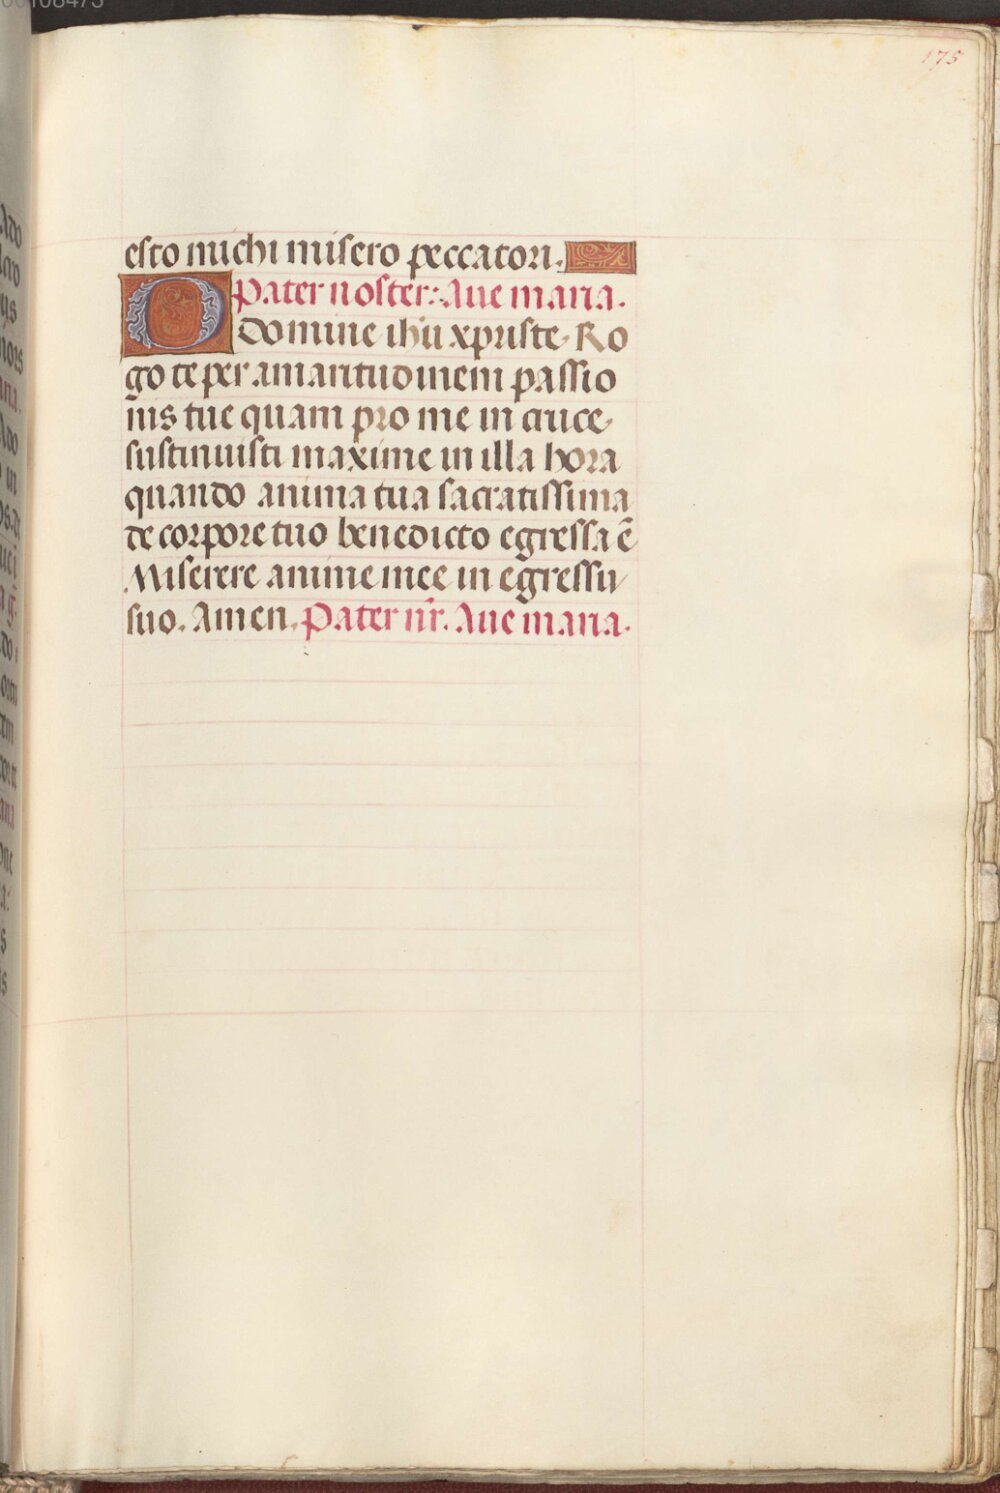 175
esto michi misero peccatori.
Pater noster: Aue maria.
O Domine ihu xpriste. Ro
go te per amaritudinem passio
nis tue quam pro me in cruce
sustinuisti maxime in illa hora
quando anima tua sacratissima
de corpore tuo benedicto egressa ē
Miserere anime mee in egressu
suo. Amen. Pater nr̄. Aue maria.